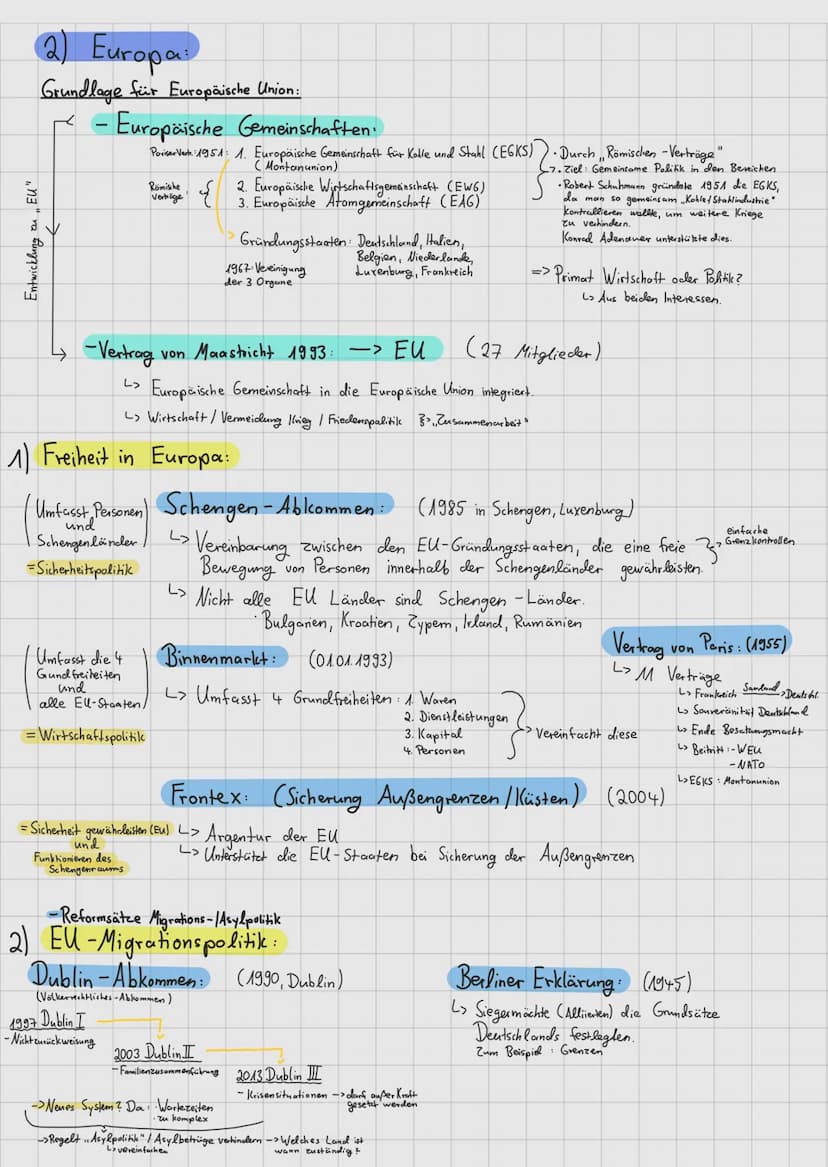 2) Europa:
Grundlage für Europäische Union:
- Europäische Gemeinschaften:
PariserVertr. 1951: 1. Europäische Gemeinschaft für Kolle und Stahl (EGKS)
(Montanunion)
Römische
Verträge:
2. Europäische Wirtschaftsgemeinschaft (EWG)
3. Europäische Atomgemeinschaft (EAG)
Gründungsstaaten: Deutschland, Italien,
Belgien, Niederlande,
Luxenburg, Frankreich
1967: Vereinigung
der 3 Organe
· Durch „Römischen-Verträge"
· Ziel: Gemeinsame Politik in den Bereichen
· Robert Schuhmann gründete 1951 die EGKS,
da man so gemeinsam „Kohle/Stahlindustrie"
kontrollieren wollte, um weitere Kriege
zu verhindern.
Konrad Adenauer unterstützte dies.
=> Primat Wirtschaft oder Politik?
↳ Aus beiden Interessen.
Entwicklung zu „EU"
- Vertrag von Maastricht 1993: —> EU (27 Mitglieder)
↳ Europäische Gemeinschaft in die Europäische Union integriert.
↳ Wirtschaft / Vermeidung Krieg / Friedenspolitik }> „Zusammenarbeit"
1) Freiheit in Europa:
(Umfasst Personen
und
Schengenländer)
= Sicherheitspolitik
Schengen-Abkommen: (1985 in Schengen, Luxenburg)
↳ Vereinbarung zwischen den EU-Gründungsstaaten, die eine freie
Bewegung von Personen innerhalb der Schengenländer gewährleisten.
einfache
Grenzkontrollen
↳ Nicht alle EU Länder sind Schengen-Länder.
· Bulgarien, Kroatien, Zypern, Irland, Rumänien
(Umfasst die 4
Gundfreiheiten
und
alle EU-Staaten)
= Wirtschaftspolitik
Binnenmarkt: (01.01.1993)
↳ Umfasst 4 Grundfreiheiten: 1. Waren
2. Dienstleistungen
3. Kapital
4. Personen
> Vereinfacht diese
Vertrag von Paris: (1955)
↳ 11 Verträge
↳ Frankreich Saarland —> Deutschl.
↳ Souveränität Deutschland
↳ Ende Besatzungsmacht
↳ Beitritt: - WEU
- NATO
↳ EGKS: Montanunion
Frontex: (Sicherung Außengrenzen/Küsten) (2004)
= Sicherheit gewährleisten (EU)
und
Funktionieren des
Schengenraums
↳ Argentur der EU
↳ Unterstützt die EU-Staaten bei Sicherung der Außengrenzen
- Reformsätze Migrations-/Asylpolitik
2) EU-Migrationspolitik:
Dublin-Abkommen: (1990, Dublin)
(Völkerrechtliches-Abkommen)
1997 Dublin I
- Nichtzurückweisung
2003 Dublin II
- Familienzusammenführung
2013 Dublin III
- Krisensituationen -> darf außer Kraft
gesetzt werden
-> Neues System? Da: · Wartezeiten
· zu komplex
-> Regelt „Asylpolitik" / Asylbetrüge verhindern -> Welches Land ist
↳ vereinfachen
wann zuständig?
Berliner Erklärung: (1945)
↳ Siegermächte (Alliierten) die Grundsätze
Deutschlands festlegten.
Zum Beispiel: Grenzen